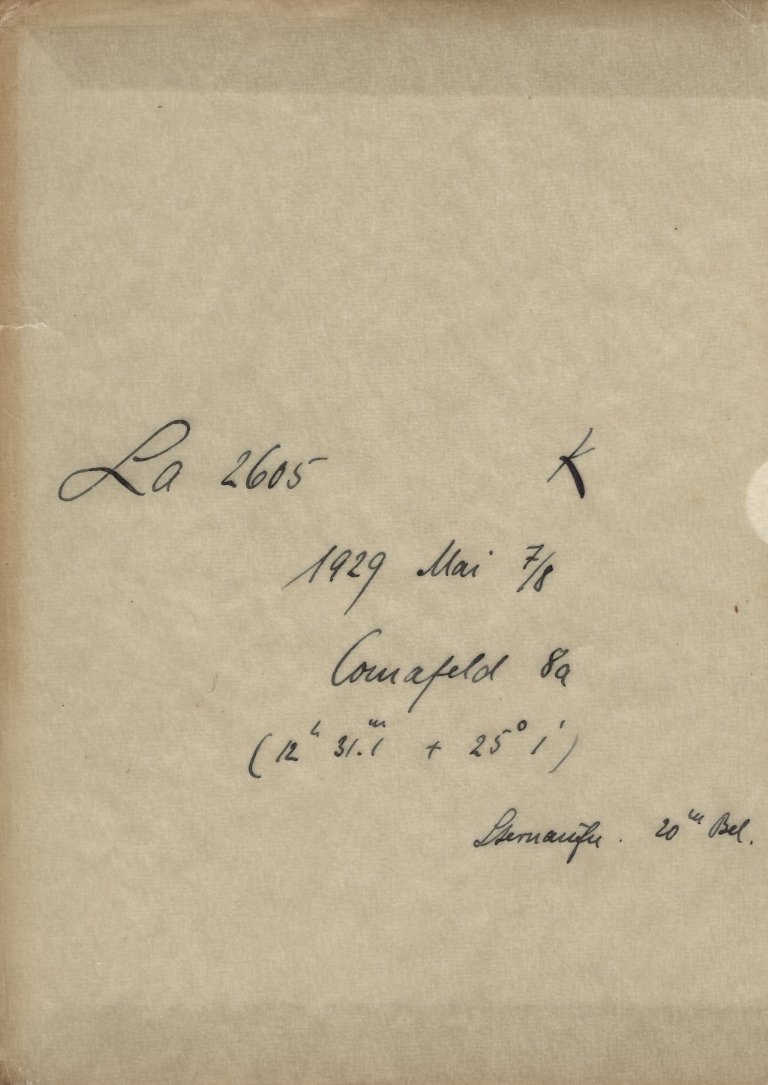 La 2605 K
1929 Mai 7/8
Comafeld 8a
(12ʰ 31.ᵐ1 + 25° 1')
Sternaufn. 20ᵐ Bel.